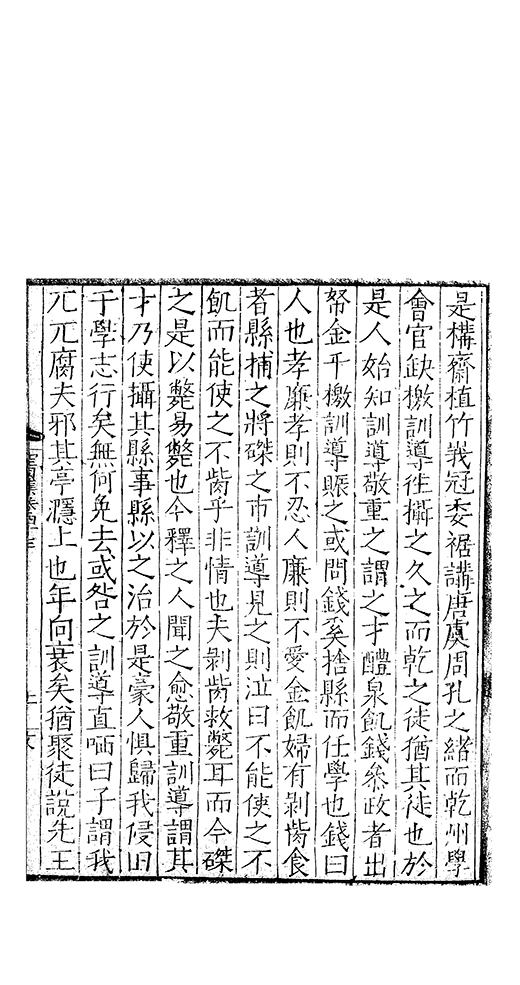 是構齋植竹峩冠委裾講唐虞周孔之緒而乾州學
會官缺檄訓導徃攝之久之而乾之徒猶其徒也於
是人始知訓導敬重之謂之才醴泉飢錢叅政者出
帑金千檄訓導賑之或問錢奚捨縣而任學也錢曰
人也孝廉孝則不忍人廉則不愛金飢婦有剝胔食
者縣捕之將磔之市訓導見之則泣曰不能使之不
飢而能使之不胔乎非情也夫剝胔救斃耳而今磔
之是以斃易斃也今釋之人聞之愈敬重訓導謂其
才乃使攝其縣事縣以之治於是豪人惧歸我侵田
于學志行矣無何免去或咎之訓導直哂曰子謂我
兀兀腐夫邪其亭㵎上也年向衰矣猶聚徒說先王